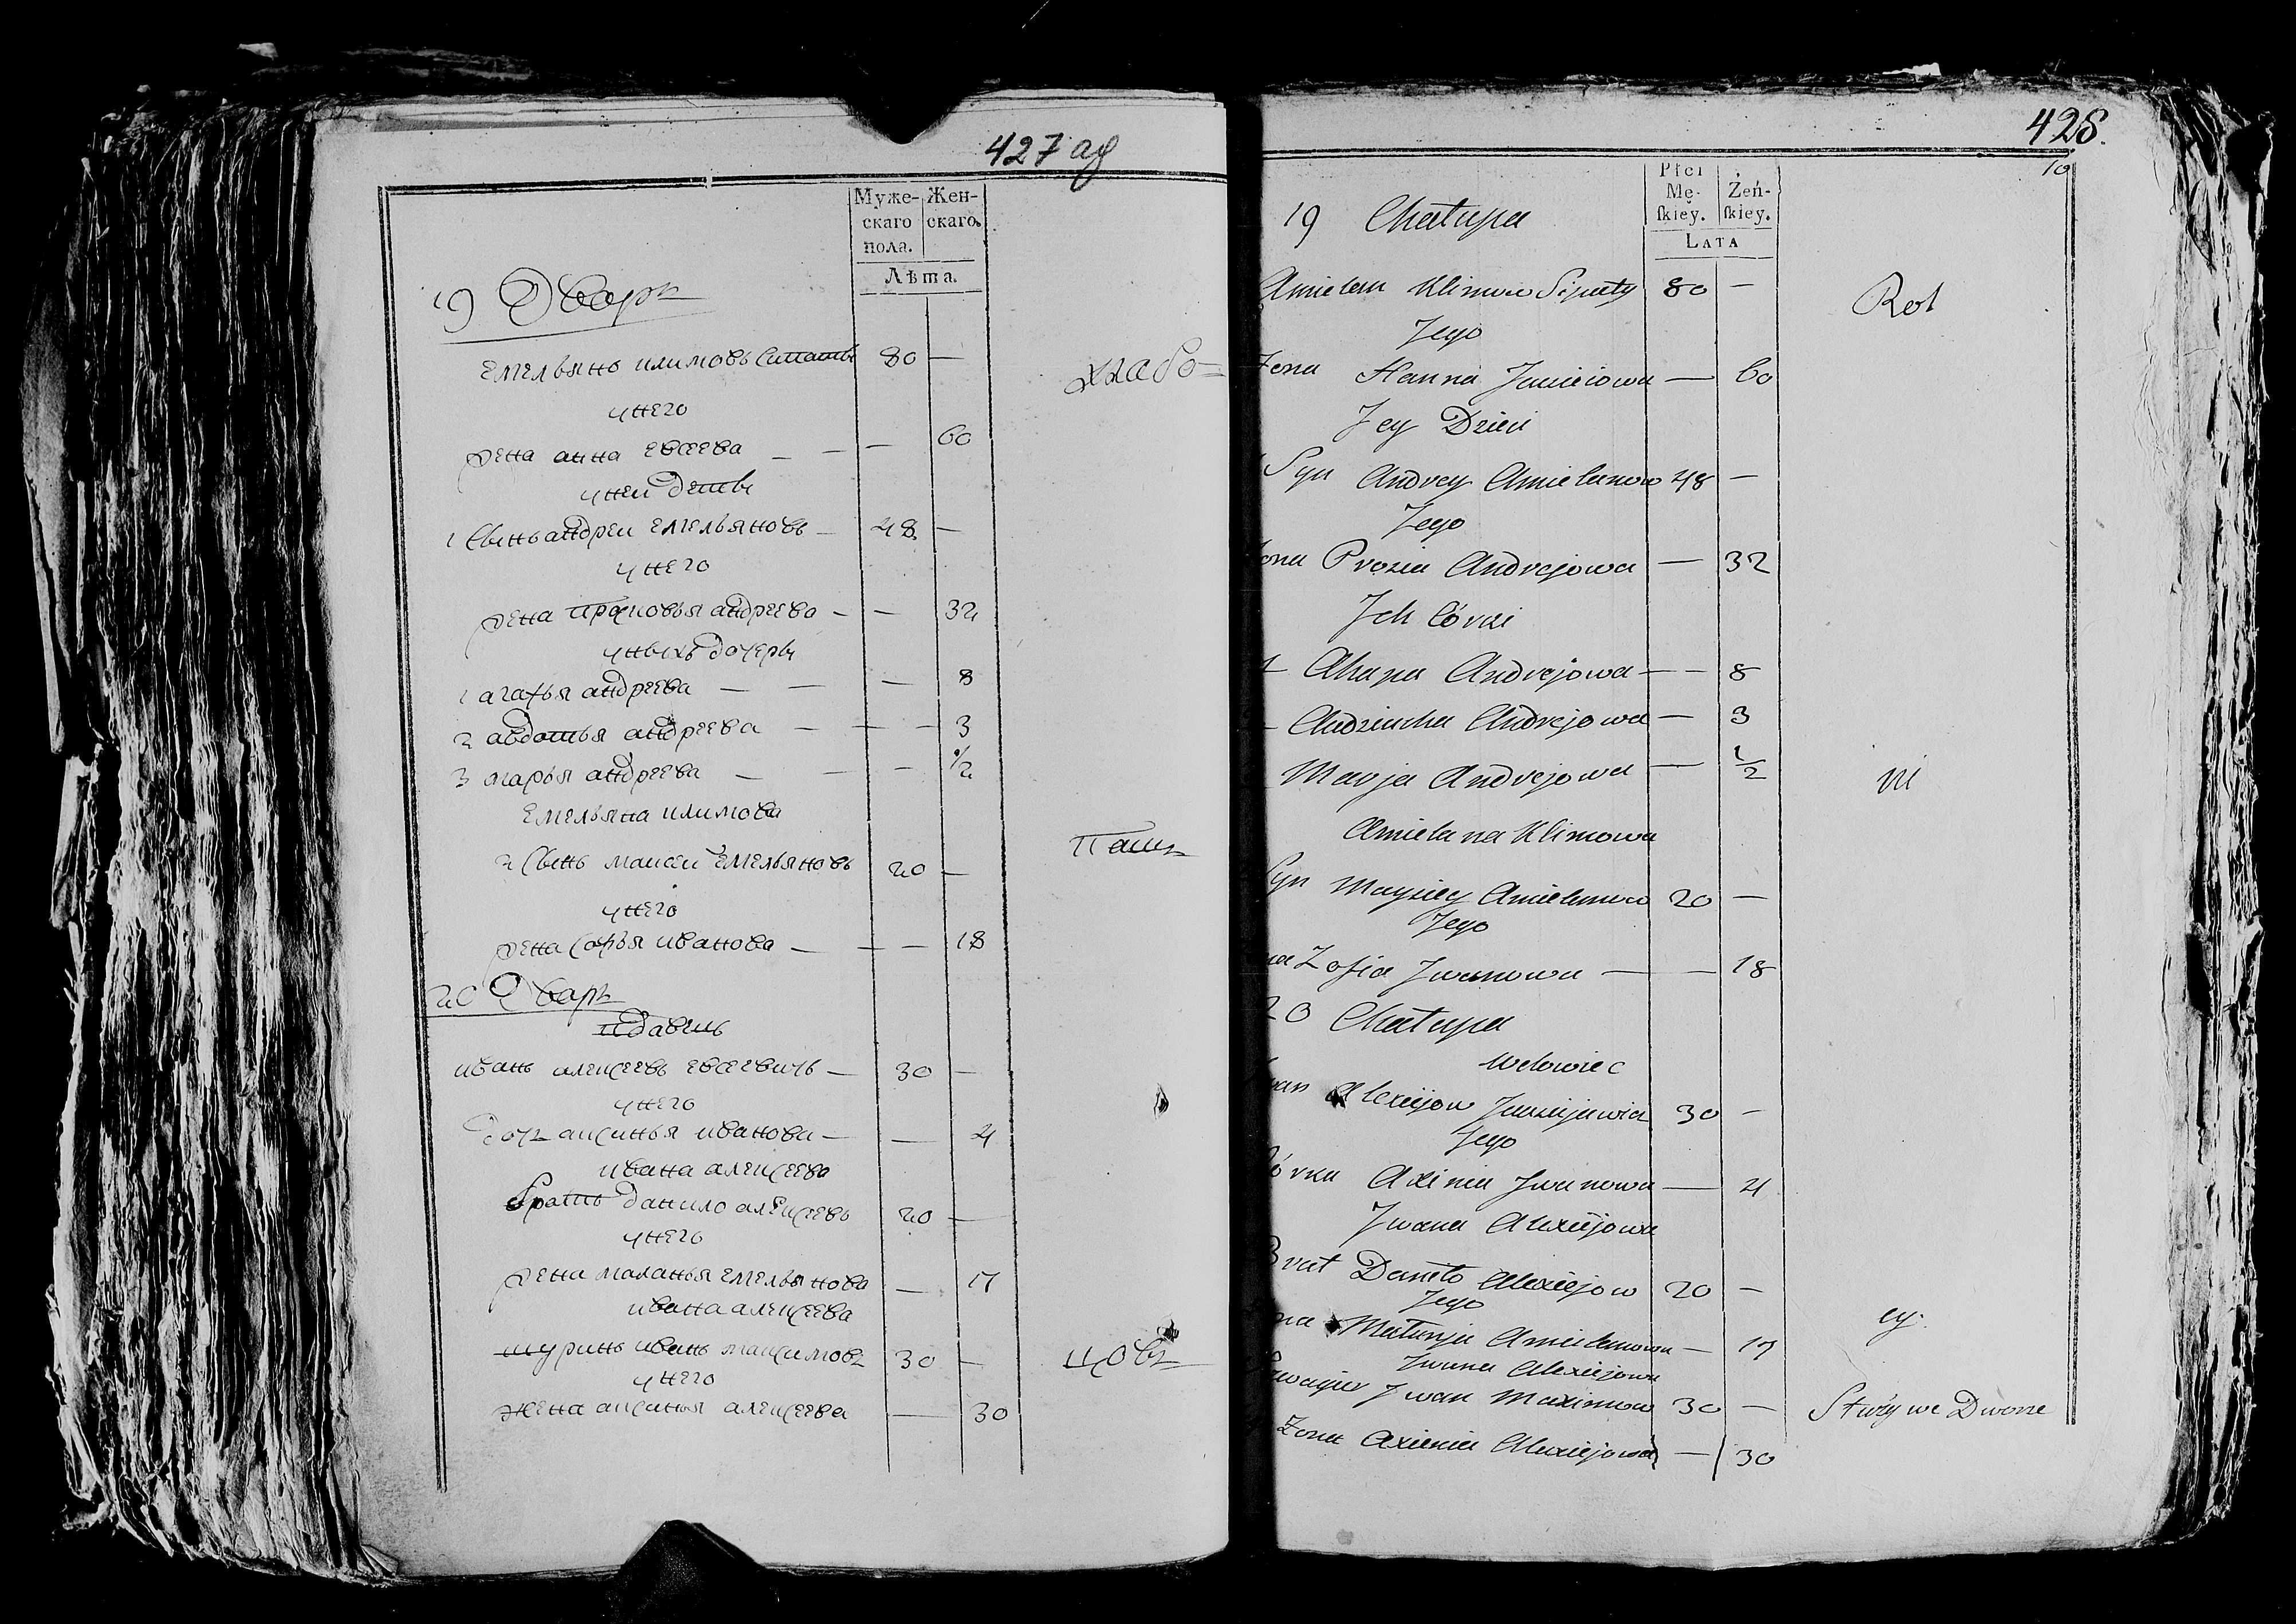 427 аф
Муже-
скаго
пола.
Жен-
скаго.
Лѣта.
19 Дворъ
Емельянъ климовъ 80 —
хлебо=
у него
жена анна евсеева — — 60
у ней дети
1 Сынъ андреи емельяновъ — 48 —
у него
жена прасковья андреева — — 32
у ныхъ дочери
1 агафья андреева — — — 8
2 авдотья андреева — — — 3
3 марья андреева — — — 1/2
емельяна климова
паш
2 Сынъ моисеи емельяновъ 20 —
у него
жена Софья иванова — — — 18
20 Дворъ
вдавецъ
иванъ алексеевъ евсеевичъ — 30 —
у него
дочь аксинья иванова — — 4
ивана алексеева
братъ данило алексеевъ 20 —
у него
жена маланья емельянова — 17
ивана алексеева
шуринъ иванъ максимовъ 30 —
цовъ
у него
жена аксинья алексеева — 30
428.
10
Płci
Mę-
skiey.
Żeń-
skiey.
LATA
19 Chałupa
Amielan Klimow 80 —
Rol
Jego
Żona Hanna — 60
Jey Dzieci
Syn Andrey Amielanow 48 —
Jego
ona Prosia Andrejowa — 32
Ich Córki
1 Ahapa Andrejowa — — 8
— Audziucha Andrejowa — 3
Marja Andrejowa — 1/2
ni
Amielana Klimowa
Syn Mayziey Amielanow 20 —
Jego
na Zofia Jwanowa — — 18
20 Chałupa
Wdowiec
wan Alexiejow 30 —
Jego
órka Axinia Jwanowa — 4
Jwana Alexiejowa
Brat Daniło Alexiejow 20 —
Jego
cy.
na Małanja Amielanowa — 17
Jwana Alexiejowa
Szwagier Jwan Maximow 30 —
Służy we Dworze
Żona Axienia Alexiejowa — 30